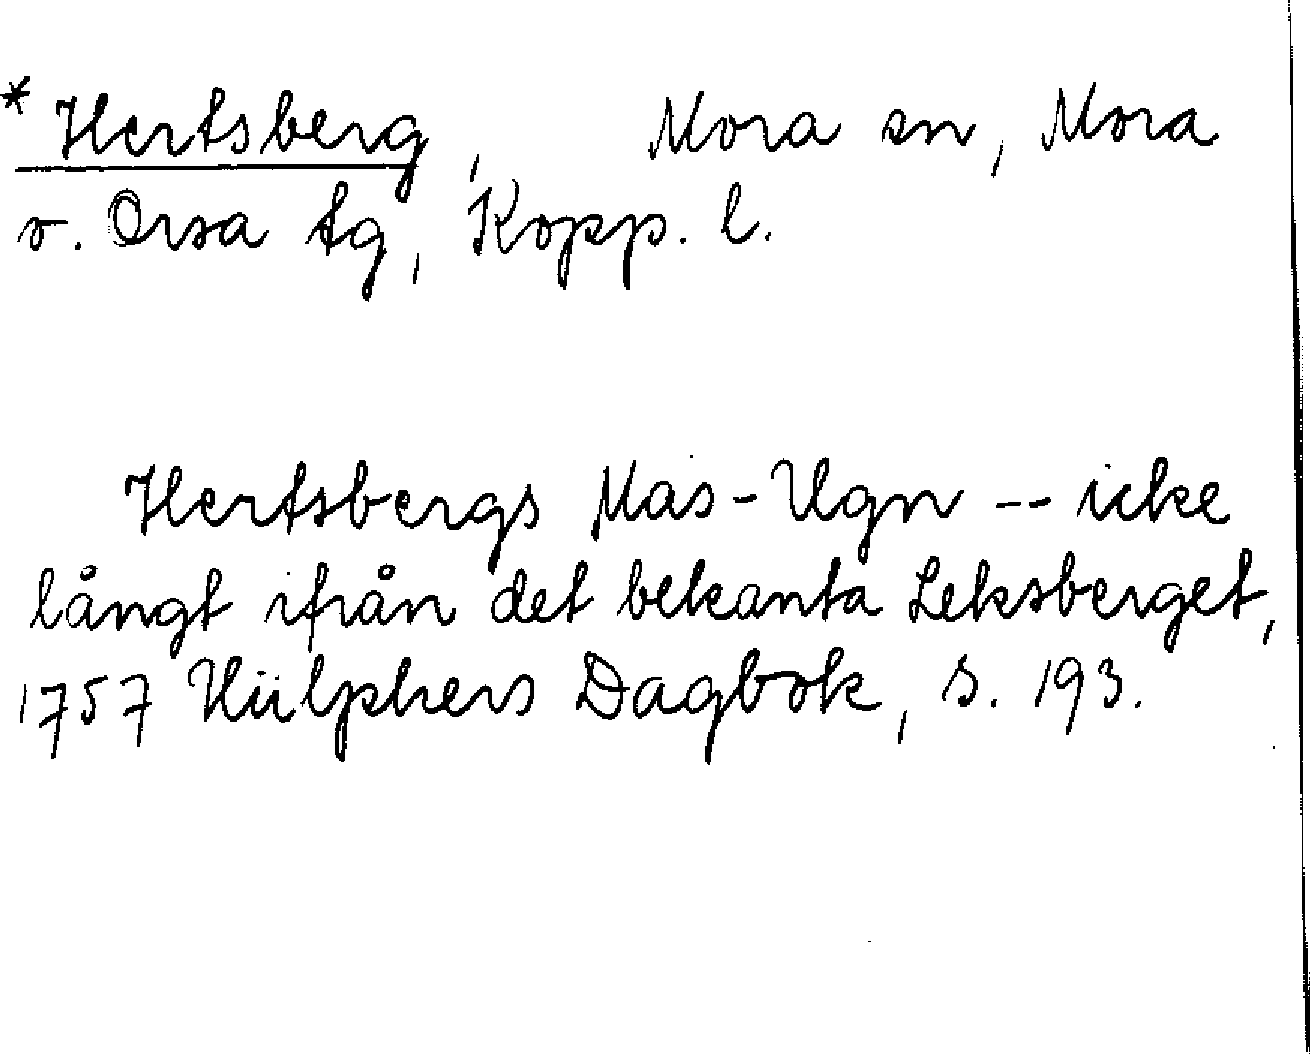 * Hertsberg, Mora sn, Mora
o. Orsa tg, Kopp. l.
Hertsbergs Mas-Ugn -- icke
långt ifrån det bekanta Leksberget,
1757 Hülphers Dagbok, s. 193.